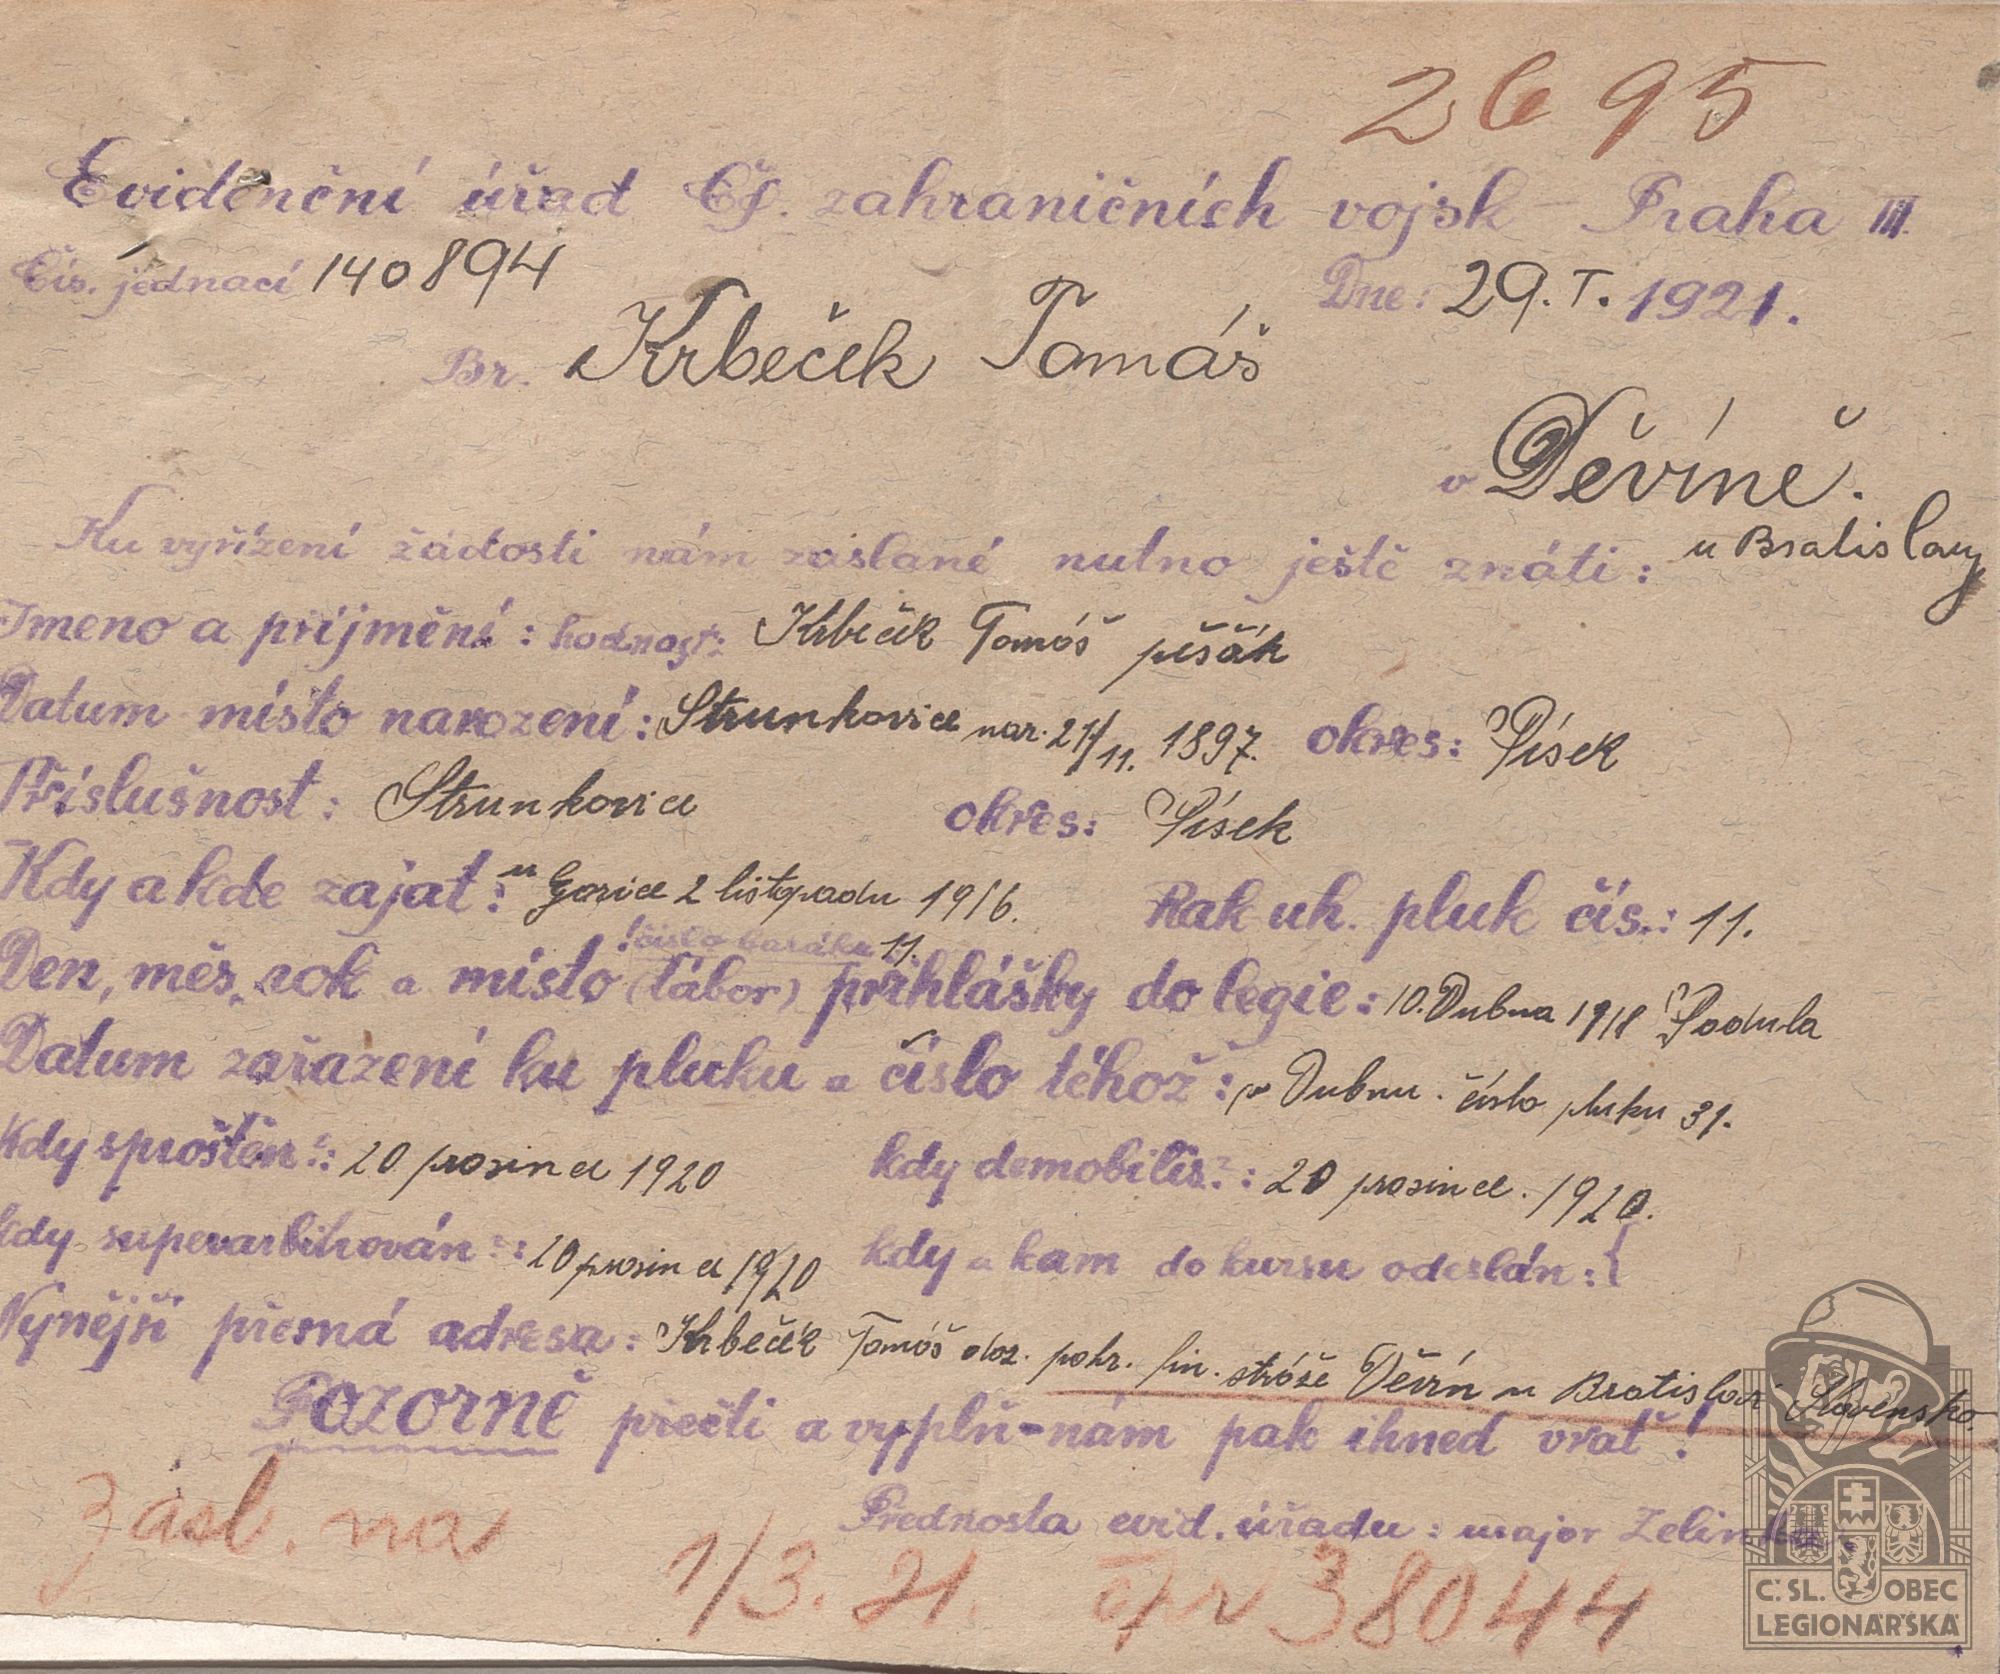 2695
Evidenční úřad Čs. zahraničních vojsk - Praha III.
Čís. jednací 140894
Dne: 29. I. 1921.
Br. Krbeček Tomáš
v Děvíně.
u Bratislavy
Ku vyřízení žádosti nám zaslané nutno ještě znáti:
Jmeno a příjmění: hodnost: Krbeček Tomáš pěšák
Datum místo narození: Strunkovice nar. 21/11. 1897. okres: Písek
Příslušnost: Strunkovice okres: Písek
Kdy a kde zajat: u Gorice 2 listopadu 1916. Rak uh. pluk čís.: 11.
! číslo baráku 11.
Den, měs, rok a místo (tábor) přihlášky do legie: 10. Dubna 1918 Padula
Datum zařazení ku pluku a číslo téhož: v Dubnu. číslo pluku 31.
Kdy sproštěn: 20 prosince 1920 kdy demobilis.: 20 prosince. 1920.
kdy superarbitrován: 20 prosince 1920 kdy a kam do kursu odeslán:
Nynější přesná adresa: Krbeček Tomáš doz. pohr. fin. stráže Děvín u Bratislavi Slovensko.
Pozorně přečti a vyplň - nám pak ihned vrať!
Přednosta evid. úřadu: major Zelinka.
zasl. na
1/3. 21. čj 38044
Č. SL. OBEC
LEGIONÁŘSKÁ